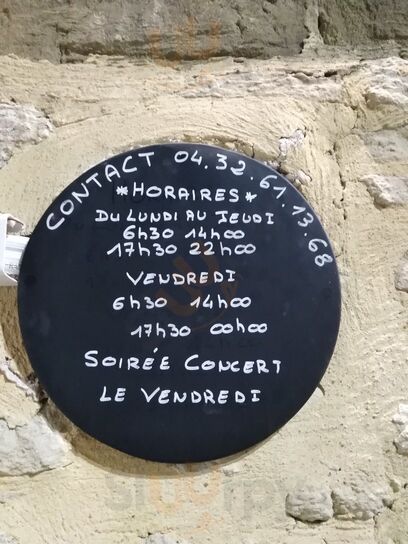 CONTACT 04.32.61.13.68
*HORAIRES*
DU LUNDI AU JEUDI
6h30 14h00
17h30 22h00
VENDREDI
6h30 14h00
17h30 00h00
SOIRÉE CONCERT
LE VENDREDI